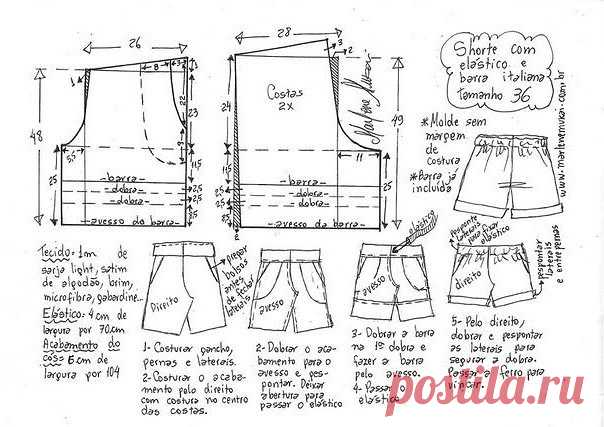 26
28
Shorte com
elástico e
barra italiana
tamanho 36
www.marlenemukai.com.br
Marlene Mukai
*Molde sem
margem
de
costura
*Barra já
incluída
Costas
2X
48
1
8
3
1
3
22
23
9
5,5
11,5
25
2,5
2,5
5
-barra-
-dobra-
-dobra-
-avesso da barra-
24
25
11,5
2,5
2,5
5
2
3
2
49
11
25
-barra-
-dobra-
-dobra-
-avesso da barra-
Tecido: 1m de
sarja light, satim
de algodão, brim,
microfibra, gabardine...
Elástico: 4 cm de
largura por 70cm
Acabamento do
cós: 6 cm de
largura por 104
Direito
pregar
bolsos
antes
de fechar
laterais
avesso
elástico
avesso
pespontar
laterais
para fixar
elástico
direito
pespontar
laterais
e entre pernas
1- Costurar gancho,
pernas e laterais.
2- Costurar o acaba-
mento pelo direito
com costura no centro
das costas.
2- Dobrar o aca-
bamento para o
avesso e pes-
pontar. Deixar
abertura para
passar o elástico
3- Dobrar a barra
na 1ª dobra e
fazer a barra
pelo avesso.
4- Passar o
elástico
5- Pelo direito,
dobrar e pespontar
as laterais para
segurar a dobra.
Passar a ferro para
vincar.
postila.ru